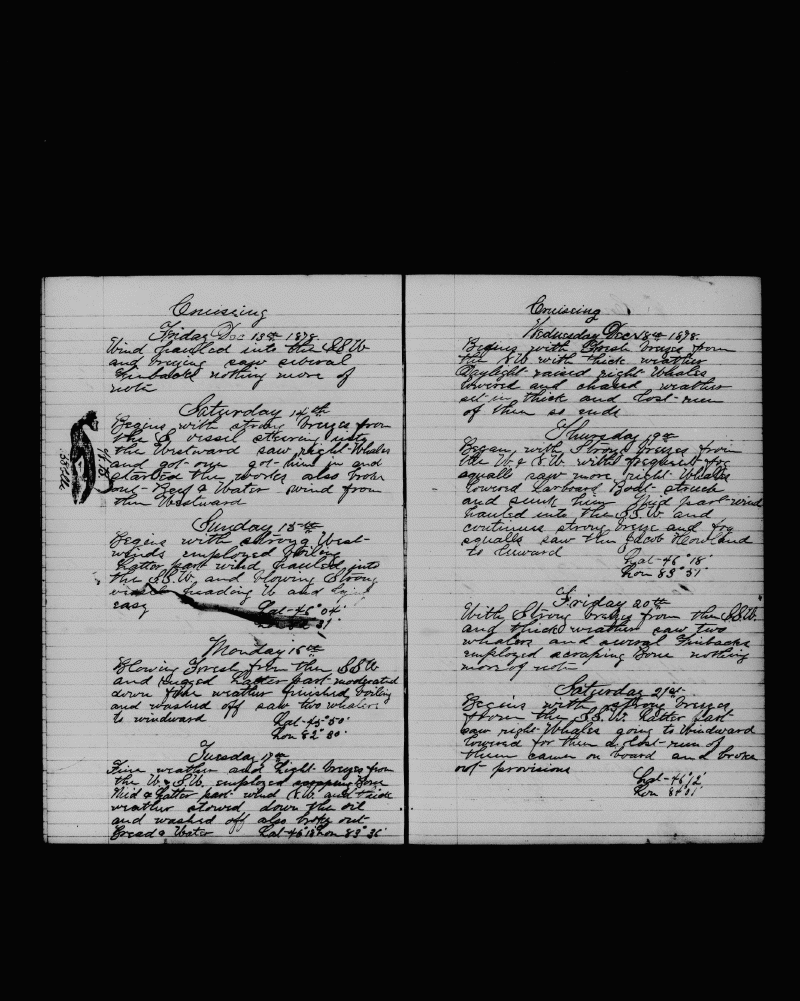 Cruising
Friday Dec 13th 1878
Wind hauled into the SSW
and breezing saw several
Finbacks nothing more of
note
Saturday 14th
Begins with strong breezes from
the S vessel steering into
the Westward saw right Whales
and got one got him in and
started the works also broke
out Beef & Water wind from
the Westward
Sunday 15th
Begins with strong West
winds employed boiling
Latter part wind hauled into
the S.S.W. and blowing strong
vessel heading W and lying
easy Lat 46° 04'
31'
Monday 16th
Blowing fresh from the SSW
and rugged Latter part moderated
down fine weather finished boiling
and washed off saw two whalers
to windward Lat 45° 50'
Lon 82° 30'
Tuesday 17th
Fine weather and Light breezes from
the W & SW. employed scraping Bone
Mid & Latter part wind S.W. and thick
weather stowed down the oil
and washed off also broke out
Bread & Water Lat 46° 18' Lon 83° 36'
Cruising
Wednesday Dec 18th 1878
Begins with fresh breezes from
the SW with thick weather
Daylight raised right Whales
lowered and chased weather
set in thick and lost run
of them so ends
Thursday 19th
Began with Strong breezes from
the W & S.W. with frequent fog
squalls saw more right Whales
lowered Larboard Boat struck
and sunk him Mid part wind
hauled into the S.S.W. and
continues strong breeze and fog
squalls saw the Jacob Howland
to leeward Lat 46° 18'
Lon 83° 31'
Friday 20th
With Strong breezes from the SSW.
and thick weather saw two
whalers and several Finbacks
employed scraping Bone nothing
more of note
Saturday 21st
Begins with strong breezes
from the S.S.W. Latter part
saw right Whales going to windward
lowered for them & lost run of
them came on board and broke
out provisions
Lat 46° 12'
Lon 84° 01'